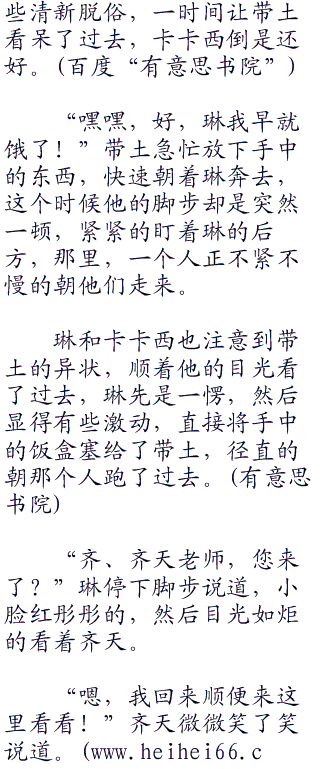 些清新脱俗，一时间让带土
看呆了过去，卡卡西倒是还
好。(百度“有意思书院”)
“嘿嘿，好，琳我早就
饿了！”带土急忙放下手中
的东西，快速朝着琳奔去，
这个时候他的脚步却是突然
一顿，紧紧的盯着琳的后
方，那里，一个人正不紧不
慢的朝他们走来。
琳和卡卡西也注意到带
土的异状，顺着他的目光看
了过去，琳先是一愣，然后
显得有些激动，直接将手中
的饭盒塞给了带土，径直的
朝那个人跑了过去。(有意思
书院)
“齐、齐天老师，您来
了？”琳停下脚步说道，小
脸红彤彤的，然后目光如炬
的看着齐天。
“嗯，我回来顺便来这
里看看！”齐天微微笑了笑
说道。(www.heihei66.c